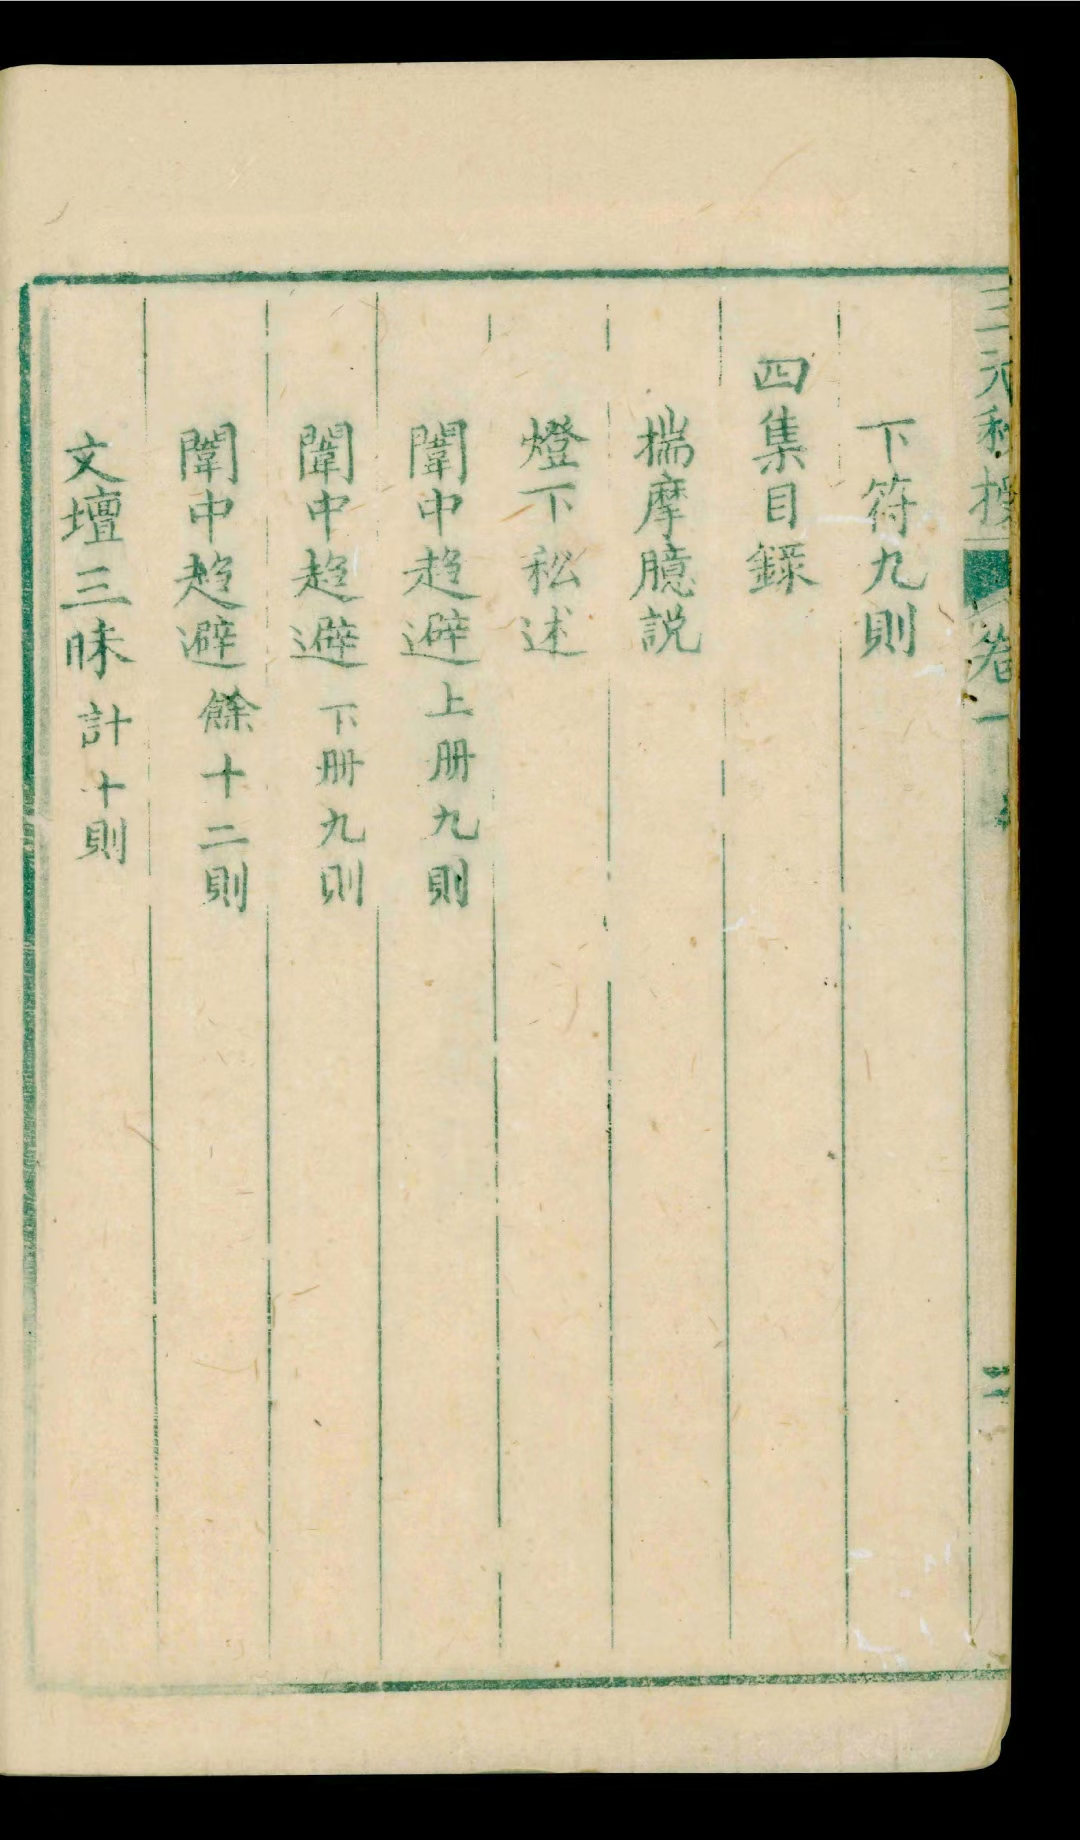 三元秘授
卷一
二
下符九則
四集目錄
揣摩臆説
燈下私述
闈中趋避上册九則
闈中趋避下册九則
闈中趋避餘十二則
文壇三昧計十則